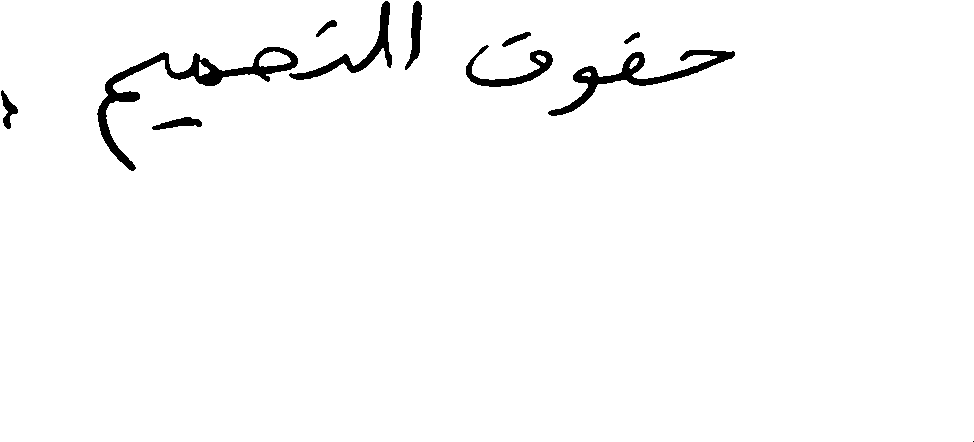 حقوق التصميم